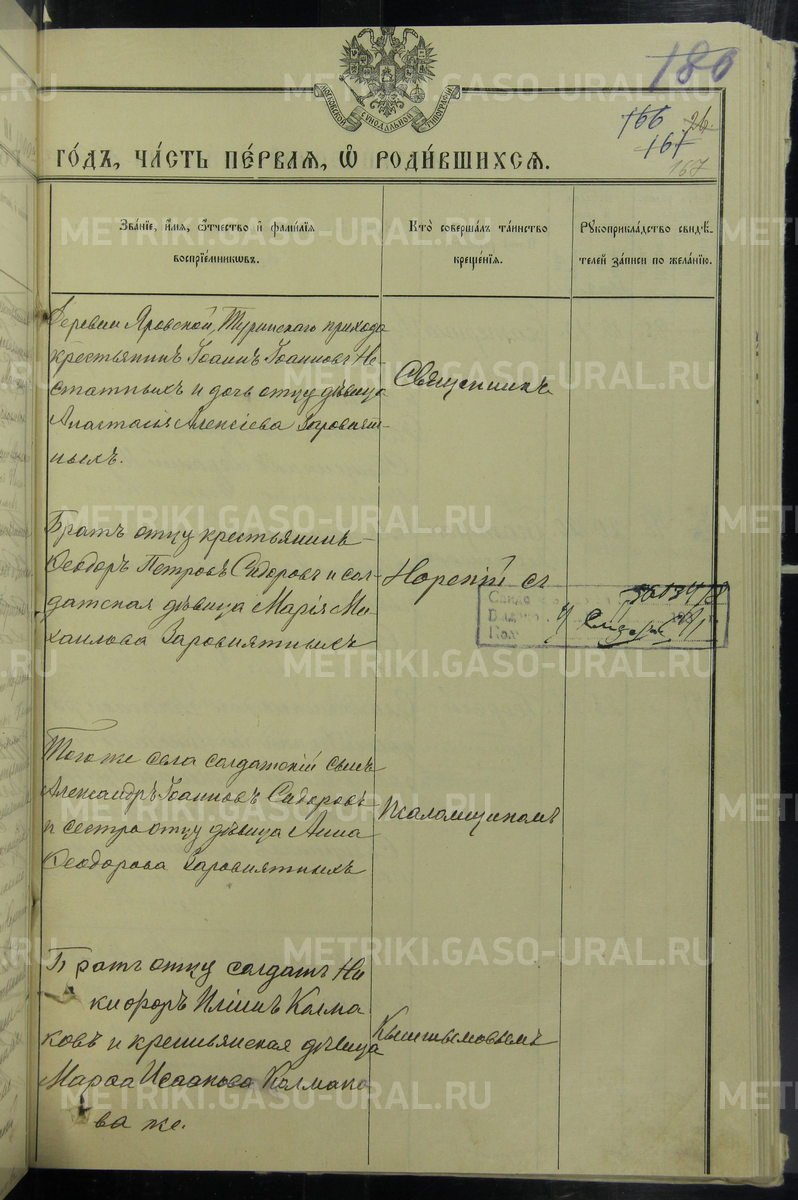 180
166 26
167
167
МОСКОВСКОЙ СѴНОДАЛЬНОЙ ТИПОГРАФІИ
ГОДЪ, ЧАСТЬ ПЕРВАЯ, Ѡ РОДИВШИХСЯ.
Званіе, имя, отчество и фамилія воспріемниковъ.
Кто совершалъ таинство крещенія.
Рукоприкладство свидѣ-
телей записи по желанію.
Деревни Яровской, Туринскаго прихода
крестьянинъ Іоаннъ Іоанновъ Не-
статныхъ и дочь отцу дѣвица
Анастасія Алексіева Заровнят-
ныхъ.
Священникъ
Братъ отцу крестьянинъ
Ѳеодоръ Петровъ Сидоровъ и сол-
датская дѣвица Марія Ми-
хаилова Заровнятныхъ
Норскій съ
Тогоже села солдатскій сынъ
Александръ Іоанновъ Сидоровъ
и сестра отцу дѣвица Анна
Ѳеодорова Заровнятныхъ
Псаломщикомъ
Братъ отцу солдатъ Ни
кифоръ Илiинъ Колма
ковъ и крестьянская дѣвица
Марѳа Исаакова Колмако
ва же.
Кыштымовымъ
METRIKI.GASO-URAL.RU